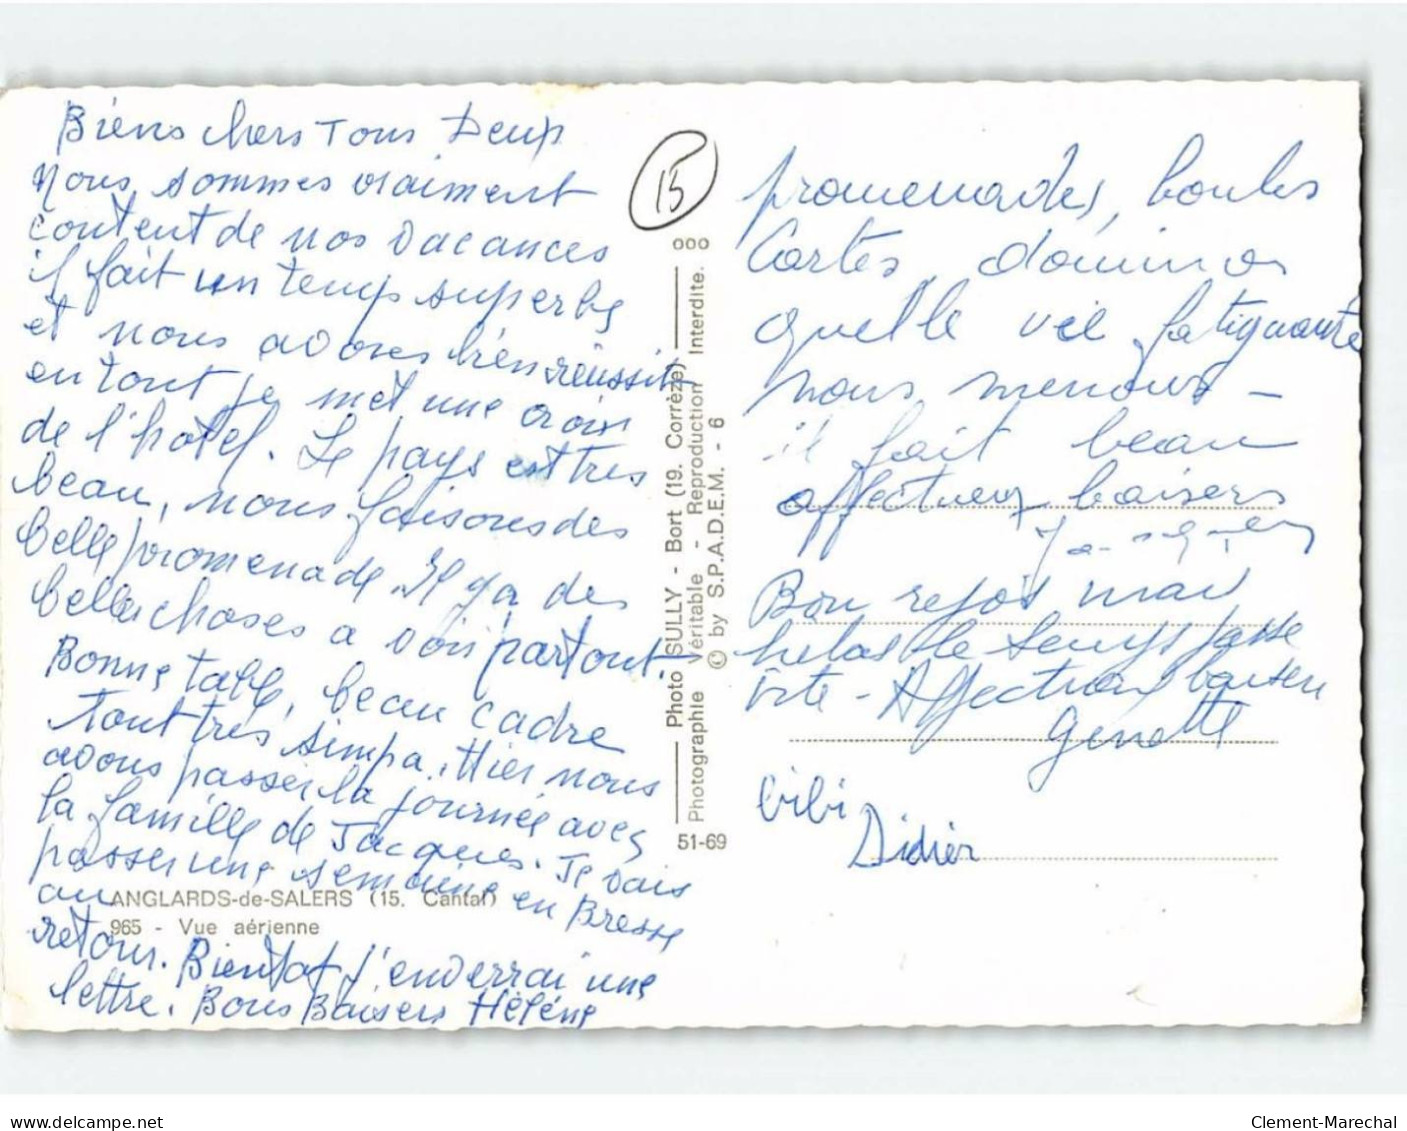 Biens chers Tous Deux
Nous sommes vraiment
content de nos vacances
il fait un temps superbe
et nous avons bien réussit
en tout je met une croix
de l'hôtel. Le pays est très
beau, nous faisons des
belle promenade Il y a des
belles choses a voir partout.
Bonne table, beau cadre
tout très simpa. Hier nous
avons passer la journée avec
la famille de Jacques. Je vais
passer une semaine en Bresse
au
retour. Bientot j'enverrai une
lettre. Bons Baisers Hélène
ANGLARDS-de-SALERS (15. Cantal)
965 - Vue aérienne
15
ooo
Photo SULLY - Bort (19. Corrèze)
Photographie Véritable - Reproduction Interdite.
© by S.P.A.D.E.M. - 6
51-69
promenades, boules
Cartes, dominos
quelle vie fatiguante
nous menons -
il fait beau
affectueux baisers
Bon repos mais
helas le temps passe
vite - Affectueux baisers
Ginette
bibi
Didier
Clement-Marechal